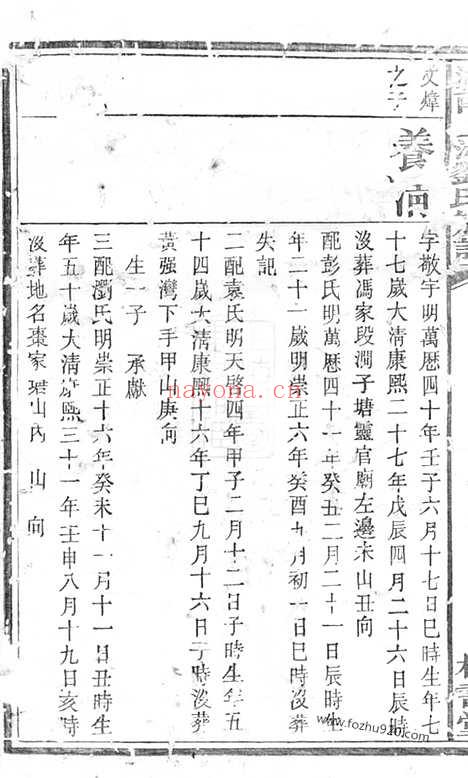 劉氏
文煒
之子
養
字敬宇明萬曆四十年壬子六月十七日巳時生年七
十七歲大清康熙二十七年戊辰四月二十六日辰時
沒葬馮家段澗子塘靈官廟左邊未山丑向
配彭氏明萬曆四十一年癸丑二月二十一日辰時生
年二十一歲明崇正六年癸酉九月初一日巳時沒葬
失記
二配袁氏明天啓四年甲子二月十二日子時生年五
十四歲大清康熙十六年丁巳九月十六日子時沒葬
黃强灣下手甲山庚向
生一子 承獻
三配劉氏明崇正十六年癸未十一月十一日丑時生
年五十歲大清康熙三十一年壬申八月十九日亥時
沒葬地名棗家 山內 山 向
書堂
nayona.cn
www.fozhu920.com